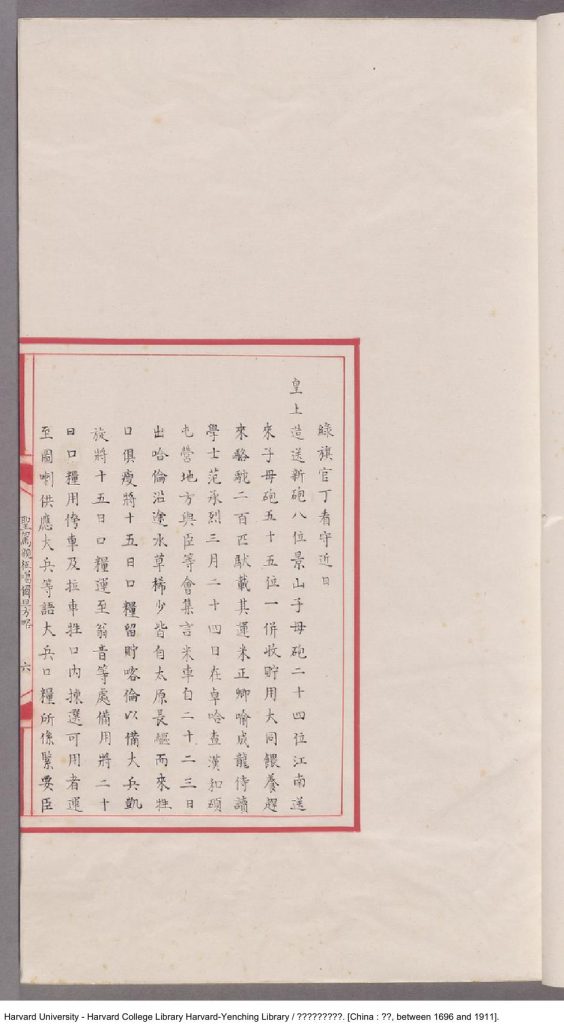 綠旗官丁看守近日
皇上造送新砲八位景山子母砲二十四位江南送
來子母砲五十五位一併收貯用大同餵養趕
來駱駝二百匹馱載其運米正卿喻成龍侍讀
學士范承烈三月二十四日在卓哈查漢和碩
屯營地方與臣等會集言米車自二十二三日
出哈倫沿途水草稀少皆自太原長驅而來牲
口俱瘦將十五日口糧留貯喀倫以備大兵凱
旋將十五日口糧運至翁昔等處備用將二十
日口糧用傍車及拉車牲口內揀選可用者運
至圖喇供應大兵等語大兵口糧所係緊要臣
聖駕親征噶爾旦方略
六
Harvard University - Harvard College Library Harvard-Yenching Library / ?????????. [China : ??, between 1696 and 1911].